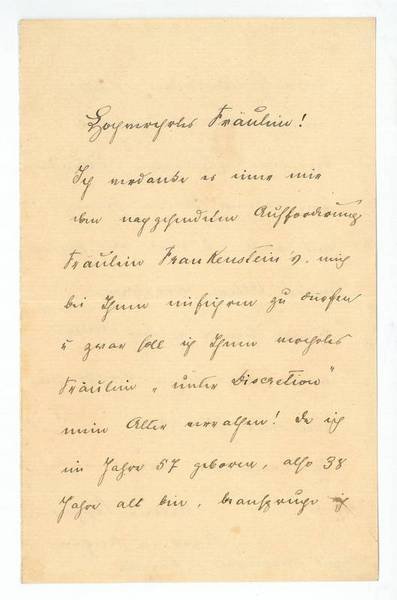 Hochverehrtes Fräulein!
Ich verdanke es einer mir
eben zugesendeten Aufforderung
Fräulein Frankenstein's. mich
bei Ihnen einführen zu dürfen
u zwar soll ich Ihnen verehrtes
Fräulein „unter Discretion"
mein Alter verrathen! Da ich
im Jahre 57 geboren, also 38
Jahre alt bin, beanspruche ich